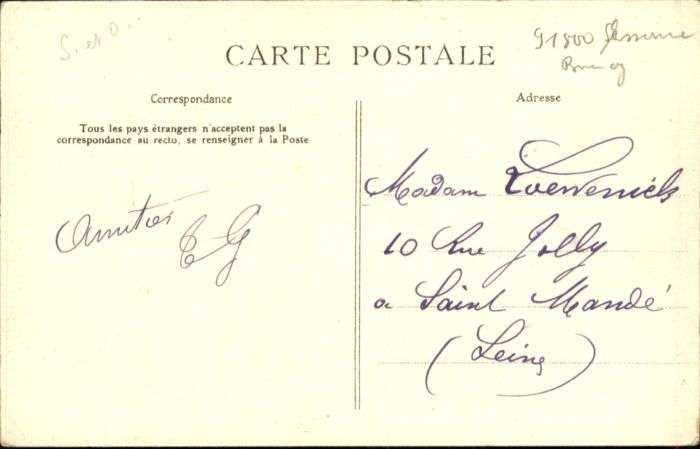 S. et O.
91800
Brunoy
CARTE POSTALE
Correspondance
Tous les pays étrangers n'acceptent pas la
correspondance au recto, se renseigner à la Poste
Amitiés
E G
Adresse
Madam
10 Rue Jolly
a Saint Mandé
(Seine)